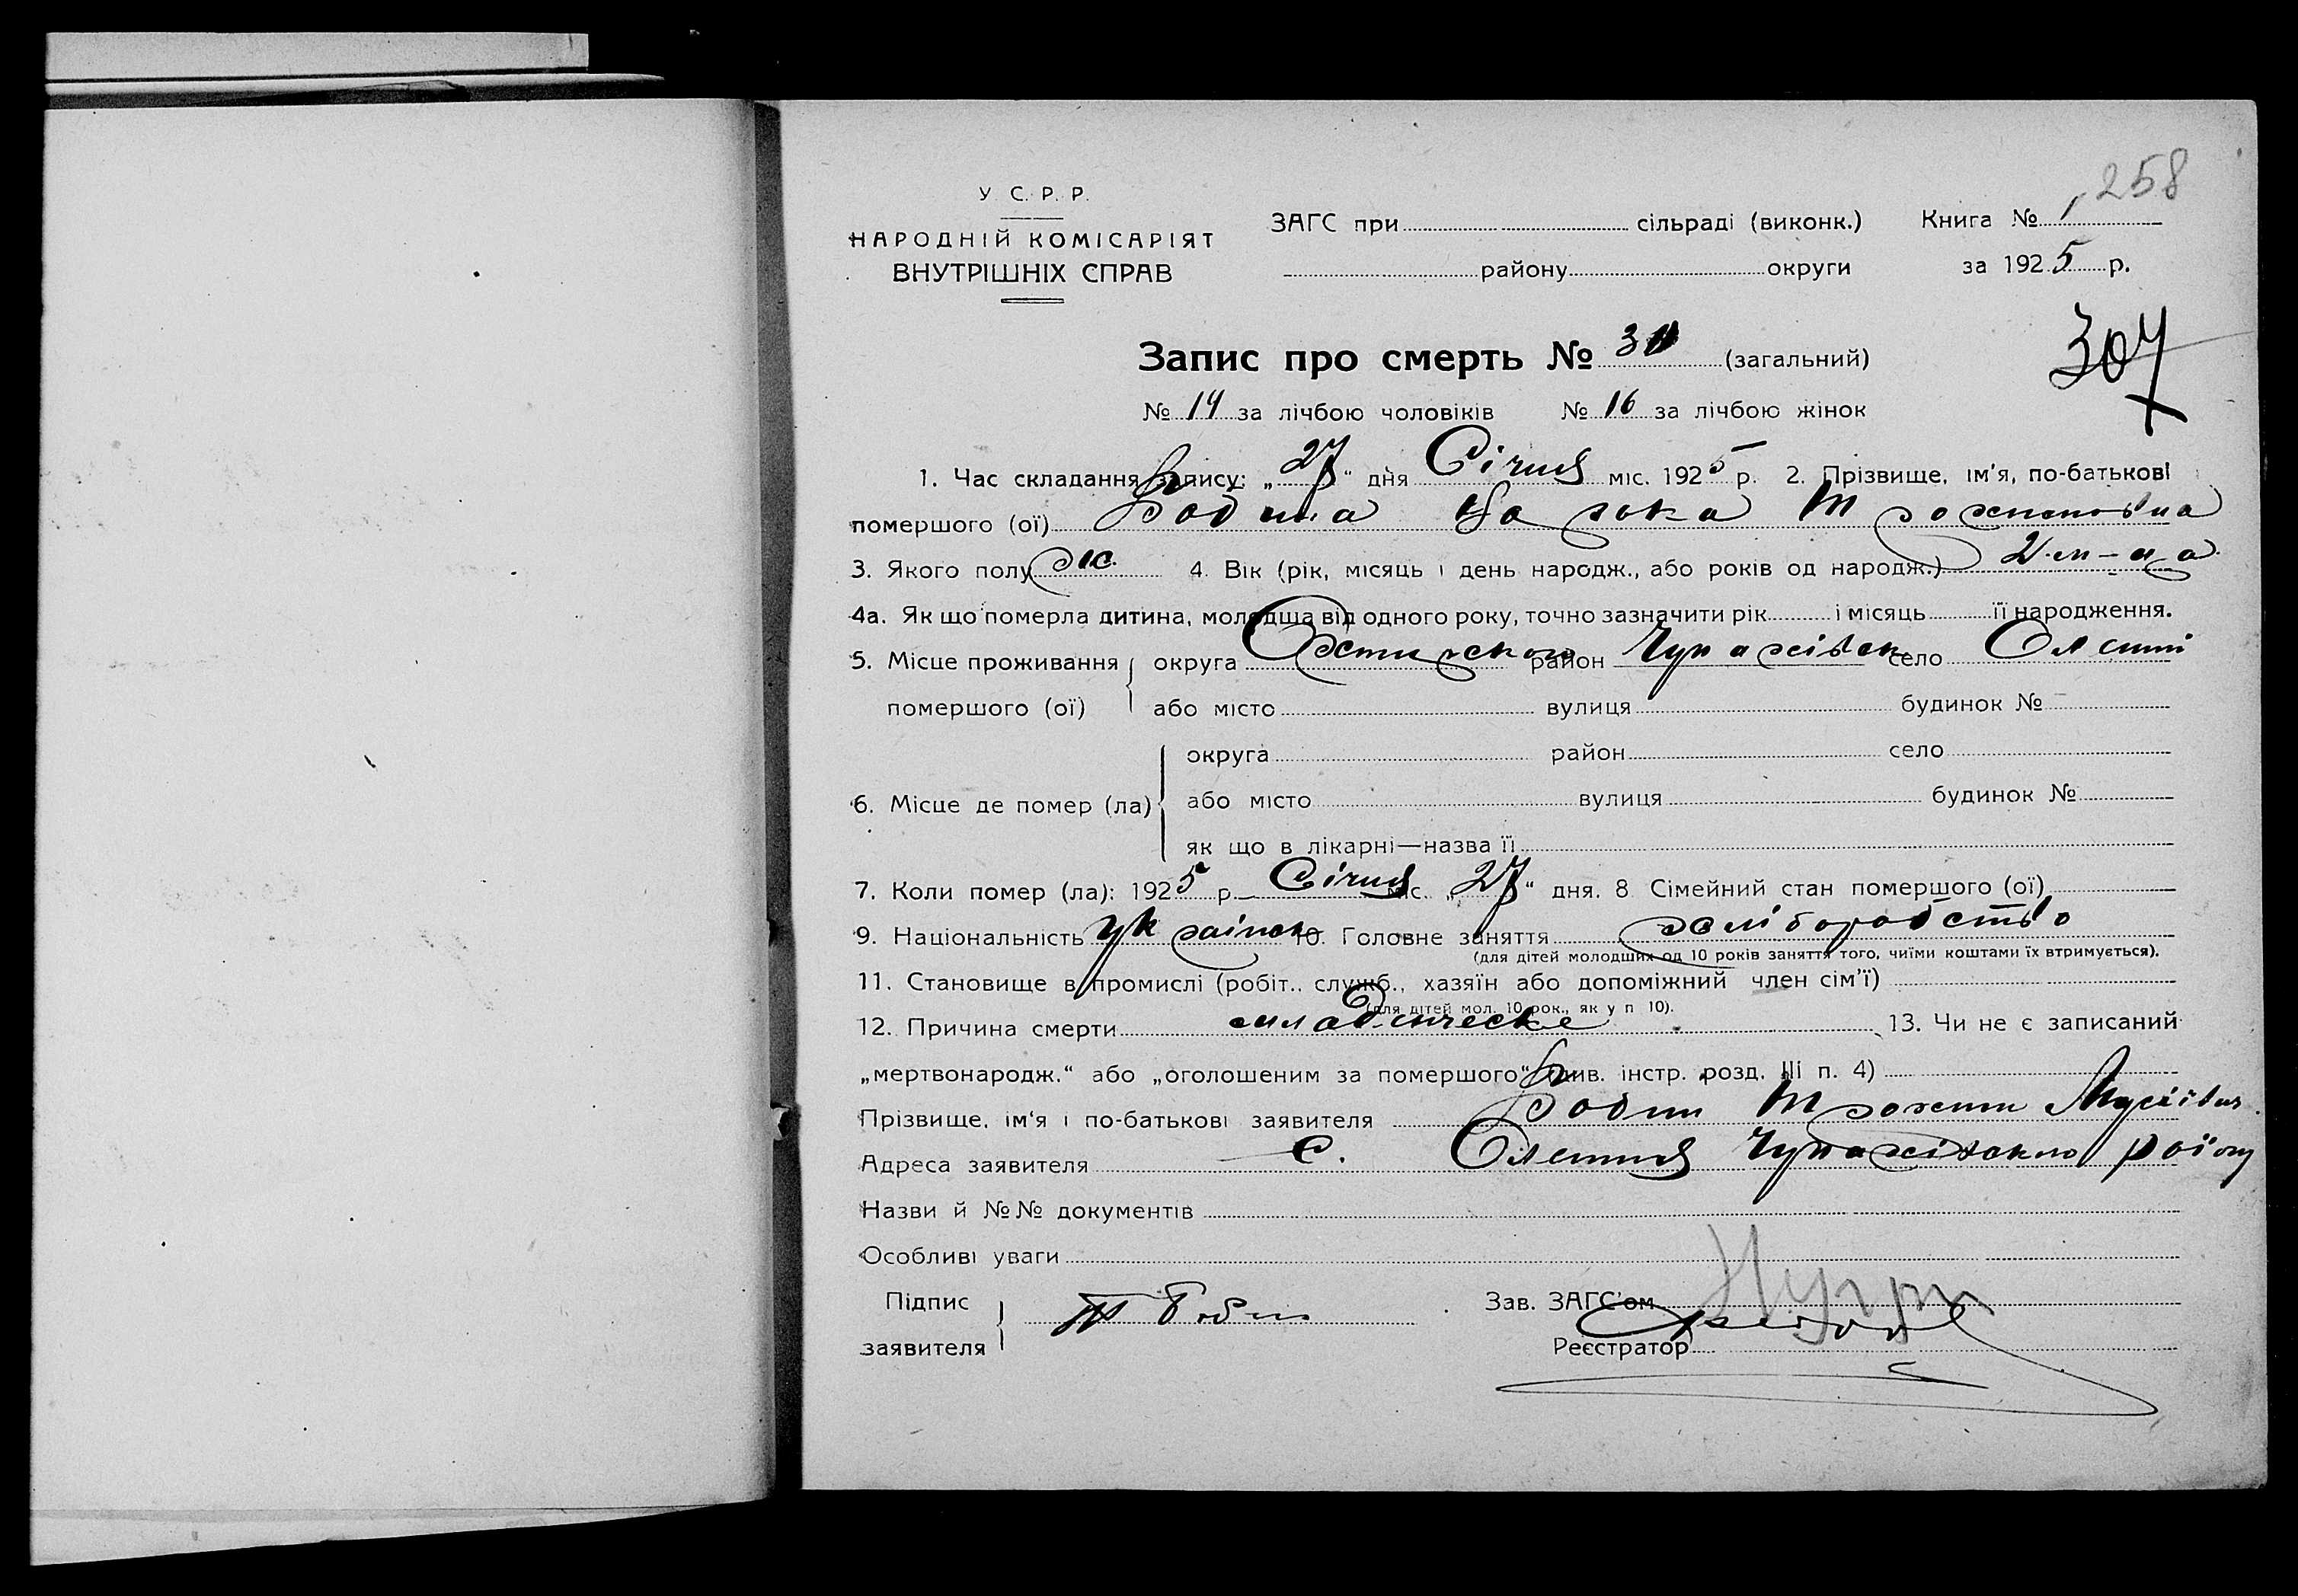 258
У С. Р. Р.
НАРОДНІЙ КОМІСАРІЯТ
ВНУТРІШНІХ СПРАВ
ЗАГС при сільраді (виконк.) Книга № 1
району округи за 1925 р.
307
Запис про смерть № 30 (загальний)
№ 14 за лічбою чоловіків № 16 за лічбою жінок
1. Час складання запису: „27“ дня Січня міс. 1925 р. 2. Прізвище, ім'я, по-батькові
помершого (ої)
3. Якого полу ж. 4. Вік (рік, місяць і день народж., або років од народж.) 2 м-ца
4а. Як що померла дитина, молодша від одного року, точно зазначити рік і місяць її народження.
5. Місце проживання округа район Чупахівск село Олешні
помершого (ої) або місто вулиця будинок №
округа район село
6. Місце де помер (ла) або місто вулиця будинок №
як що в лікарні—назва її
7. Коли помер (ла): 1925 р. Січня міс. „27“ дня. 8 Сімейний стан помершого (ої)
9. Національність українск 10. Головне заняття хліборобство
(для дітей молодших од 10 років заняття того, чиїми коштами їх втримується).
11. Становище в промислі (робіт.. служб., хазяїн або допоміжний член сім'ї)
(для дітей мол. 10 рок., як у п 10).
12. Причина смерти младенческе 13. Чи не є записаний
„мертвонародж.“ або „оголошеним за помершого“ (див. інстр. розд. III п. 4)
Прізвище, ім'я і по-батькові заявителя
Адреса заявителя с. Олешня Чупахівского району
Назви й №№ документів
Особливі уваги
Підпис
заявителя
Зав. ЗАГС'ом
Реєстратор